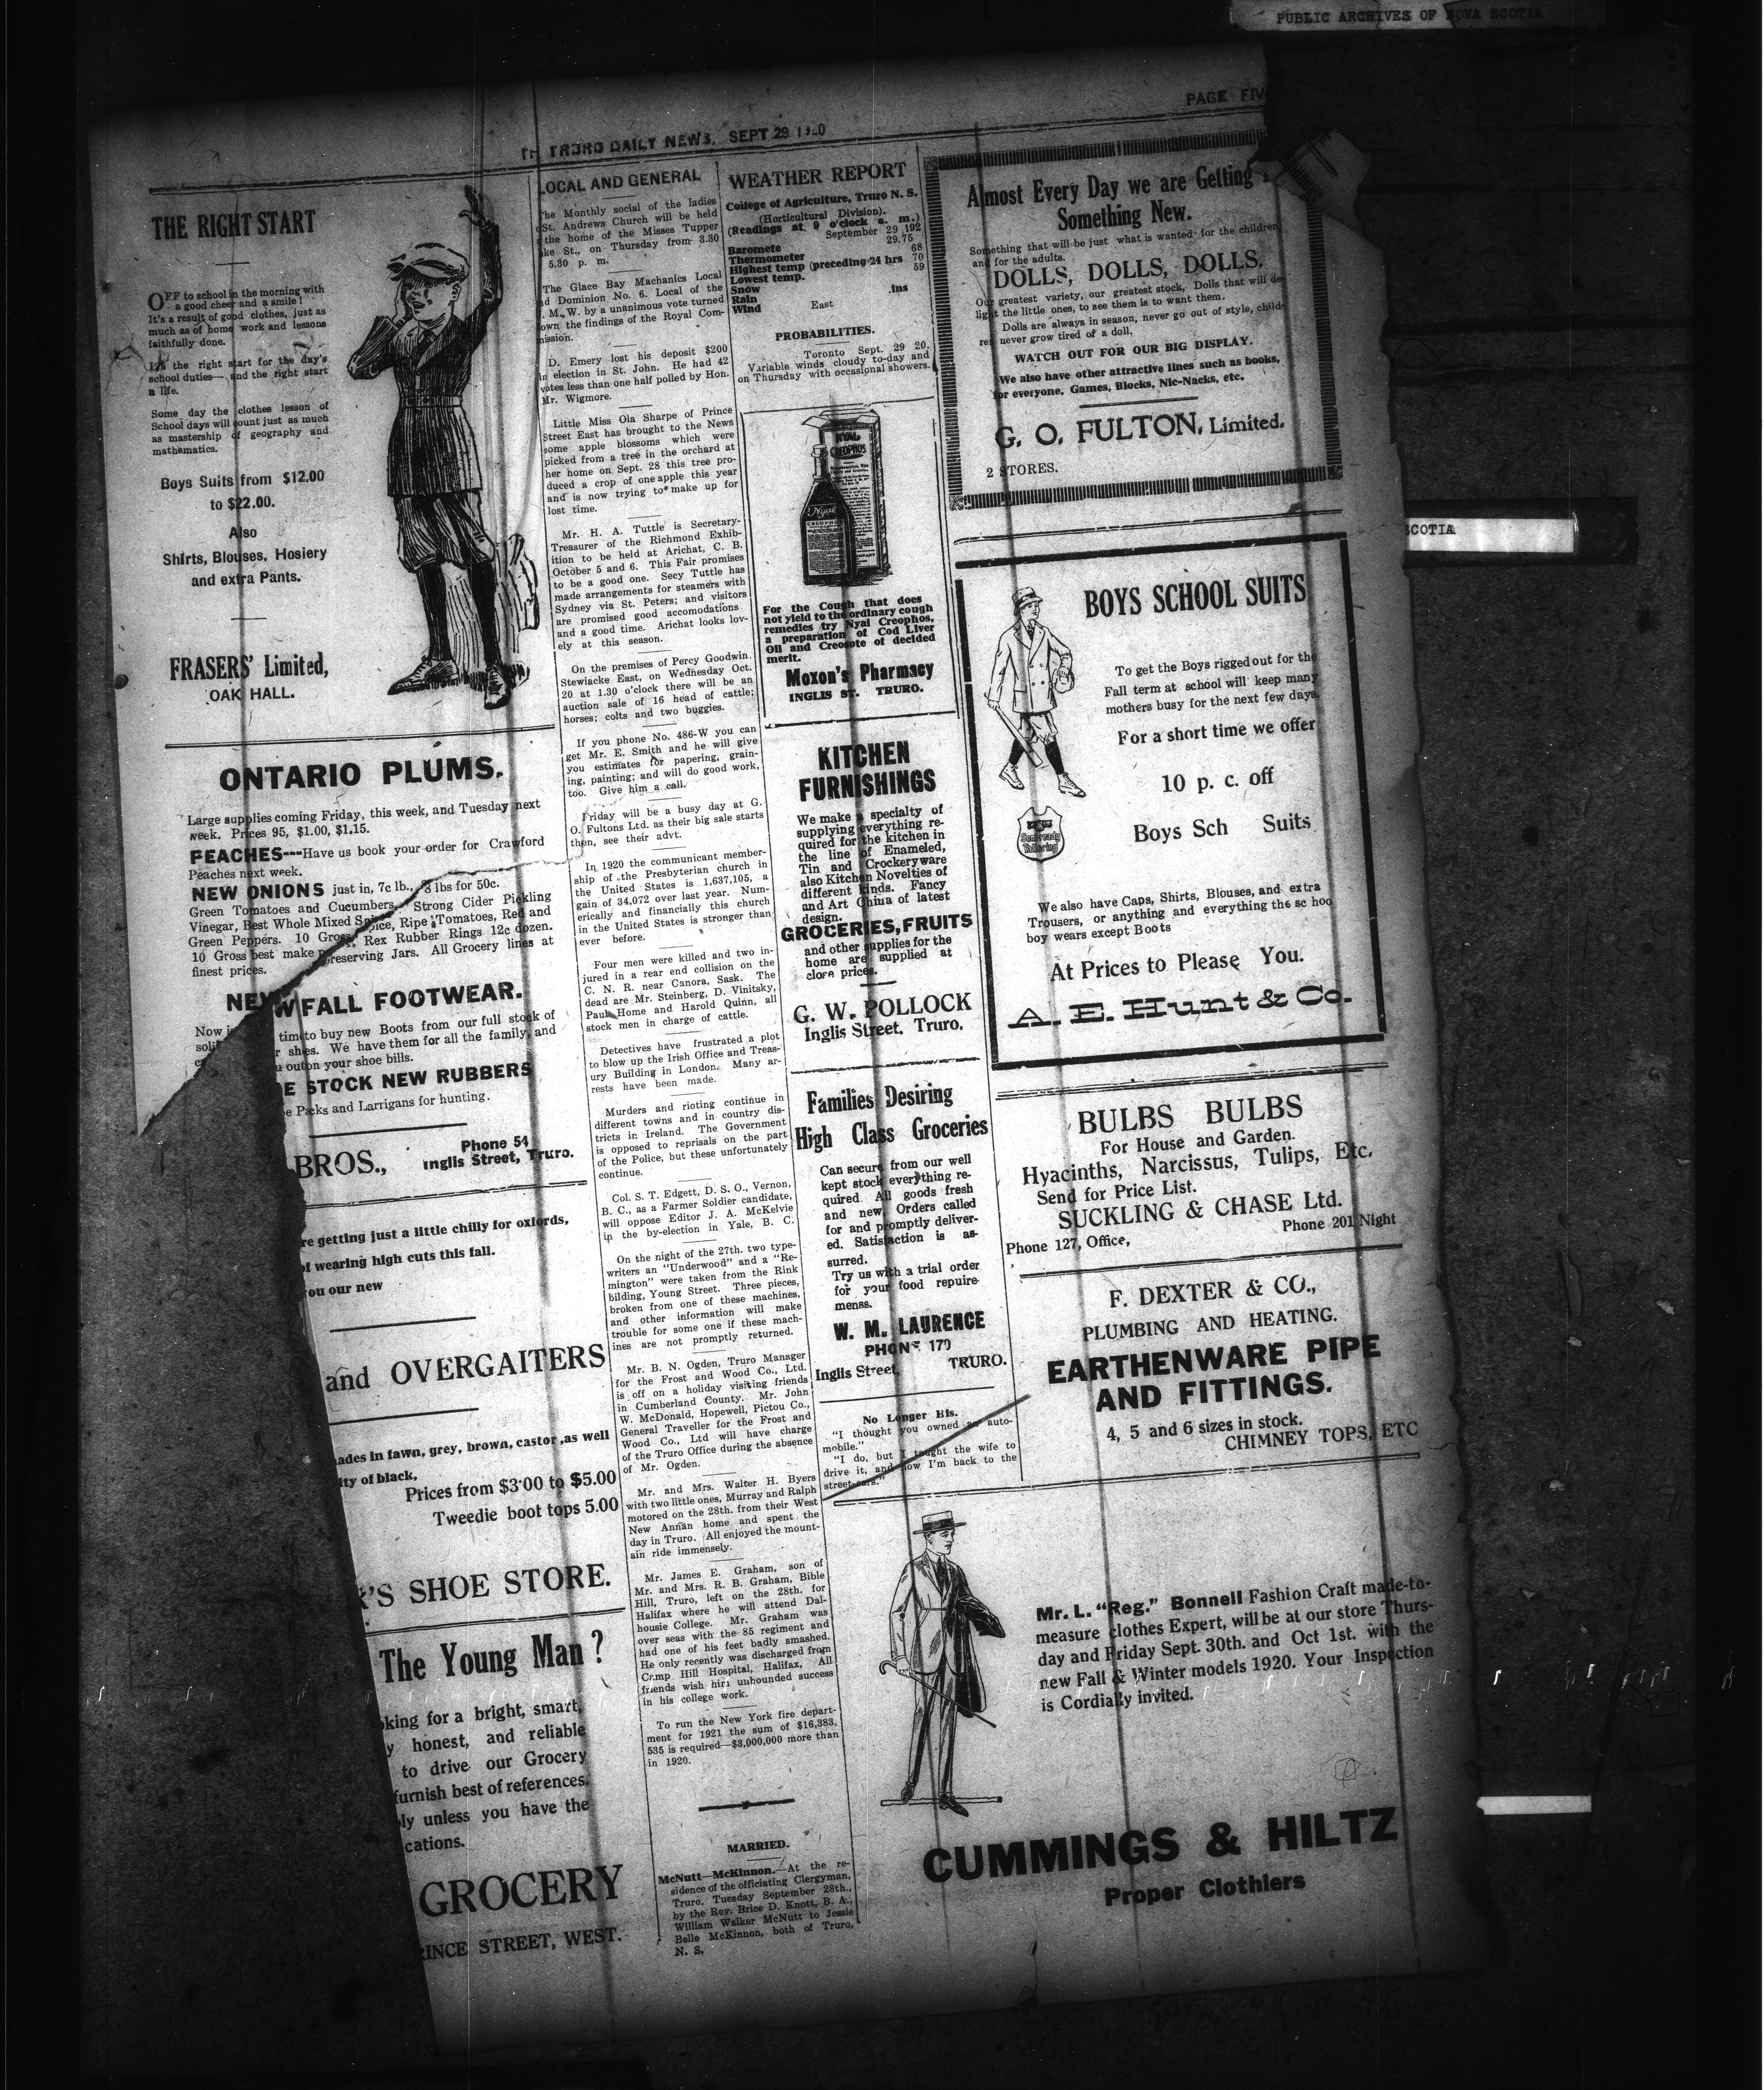 PUBLIC ARCHIVES OF NOVA SCOTIA
PAGE FIV
TRURO DAILY NEWS. SEPT 29
THE RIGHT START
OFF to school in the morning with
a good cheer and a smile!
It's a result of good clothes, just as
much as of home work and lessons
faithfully done.
It's the right start for the day's
school duties—and the right start
a life.
Some day the clothes lesson of
School days will count just as much
as mastership of geography and
mathematics.
Boys Suits from $12.00
to $22.00.
Also
Shirts, Blouses, Hosiery
and extra Pants.
FRASERS' Limited,
OAK HALL.
ONTARIO PLUMS.
Large supplies coming Friday, this week, and Tuesday next
week. Prices 95, $1.00, $1.15.
PEACHES---Have us book your order for Crawford
Peaches next week.
NEW ONIONS just in, 7c lb., 8 lbs for 50c.
Green Tomatoes and Cucumbers, Strong Cider Pickling
Vinegar, Best Whole Mixed Spice, Ripe Tomatoes, Red and
Green Peppers. 10 Gross Rex Rubber Rings 12c dozen.
10 Gross best make Preserving Jars. All Grocery lines at
finest prices.
NEW FALL FOOTWEAR.
Now is time to buy new Boots from our full stock of
soli shes. We have them for all the family, and
out on your shoe bills.
E STOCK NEW RUBBERS
Packs and Larrigans for hunting.
BROS.,
Phone 54
Inglis Street, Truro.
re getting just a little chilly for oxfords,
of wearing high cuts this fall.
you our new
and OVERGAITERS
ades in fawn, grey, brown, castor ,as well
lty of black,
Prices from $3.00 to $5.00
Tweedie boot tops 5.00
'S SHOE STORE.
The Young Man?
king for a bright, smart,
y honest, and reliable
to drive our Grocery
furnish best of references.
ly unless you have the
cations.
GROCERY
RINCE STREET, WEST.
LOCAL AND GENERAL
The Monthly social of the ladies
St. Andrews Church will be held
the home of the Misses Tupper
ke St., on Thursday from 3.30
5.30 p. m.
The Glace Bay Machanics Local
nd Dominion No. 6. Local of the
. M. W. by a unanimous vote turned
own the findings of the Royal Com-
mission.
D. Emery lost his deposit $200
in election in St. John. He had 42
votes less than one half polled by Hon.
Mr. Wigmore.
Little Miss Ola Sharpe of Prince
Street East has brought to the News
some apple blossoms which were
picked from a tree in the orchard at
her home on Sept. 28 this tree pro-
duced a crop of one apple this year
and is now trying to make up for
lost time.
Mr. H. A. Tuttle is Secretary-
Treasurer of the Richmond Exhib-
ition to be held at Arichat, C. B.
October 5 and 6. This Fair promises
to be a good one. Secy Tuttle has
made arrangements for steamers with
Sydney via St. Peters; and visitors
are promised good accomodations
and a good time. Arichat looks lov-
ely at this season.
On the premises of Percy Goodwin,
Stewiacke East, on Wednesday Oct.
20 at 1.30 o'clock there will be an
auction sale of 16 head of cattle;
horses; colts and two buggies.
If you phone No. 486-W you can
get Mr. E. Smith and he will give
you estimates for papering, grain-
ing, painting; and will do good work,
too. Give him a call.
Friday will be a busy day at G.
O. Fultons Ltd. as their big sale starts
then, see their advt.
In 1920 the communicant member-
ship of the Presbyterian church in
the United States is 1,637,105, a
gain of 34,072 over last year. Num-
erically and financially this church
in the United States is stronger than
ever before.
Four men were killed and two in-
jured in a rear end collision on the
C. N. R. near Canora, Sask. The
dead are Mr. Steinberg, D. Vinitsky,
Paul Home and Harold Quinn, all
stock men in charge of cattle.
Detectives have frustrated a plot
to blow up the Irish Office and Treas-
ury Building in London. Many ar-
rests have been made.
Murders and rioting continue in
different towns and in country dis-
tricts in Ireland. The Government
is opposed to reprisals on the part
of the Police, but these unfortunately
continue.
Col. S. T. Edgett, D. S. O., Vernon,
B. C., as a Farmer Soldier candidate,
will oppose Editor J. A. McKelvie
in the by-election in Yale, B. C.
On the night of the 27th. two type-
writers an "Underwood" and a "Re-
mington" were taken from the Rink
bilding, Young Street. Three pieces,
broken from one of these machines,
and other information will make
trouble for some one if these mach-
ines are not promptly returned.
Mr. B. N. Ogden, Truro Manager
for the Frost and Wood Co., Ltd.
is off on a holiday visiting friends
in Cumberland County. Mr. John
W. McDonald, Hopewell, Pictou Co.,
General Traveller for the Frost and
Wood Co., Ltd will have charge
of the Truro Office during the absence
of Mr. Ogden.
Mr. and Mrs. Walter H. Byers
with two little ones, Murray and Ralph
motored on the 28th. from their West
New Annan home and spent the
day in Truro. All enjoyed the mount-
ain ride immensely.
Mr. James E. Graham, son of
Mr. and Mrs. R. B. Graham, Bible
Hill, Truro, left on the 28th. for
Halifax where he will attend Dal-
housie College. Mr. Graham was
over seas with the 85 regiment and
had one of his feet badly smashed.
He only recently was discharged from
Camp Hill Hospital, Halifax, All
friends wish him unbounded success
in his college work.
To run the New York fire depart-
ment for 1921 the sum of $16,383,
535 is required—$8,000,000 more than
in 1920.
MARRIED.
McNutt—McKinnon.—At the re-
sidence of the officiating Clergyman,
Truro, Tuesday September 28th.,
by the Rev. Brice D. Knott, B. A.,
William Walker McNutt to Jessie
Belle McKinnon, both of Truro,
N. S.
WEATHER REPORT
College of Agriculture, Truro N. S.
(Horticultural Division).
(Readings at 9 o'clock a. m.)
September 29 192
Baromete 29.75
Thermometer 68
Highest temp (preceding 24 hrs 70
Lowest temp. 59
Snow .ins
Rain
Wind East
PROBABILITIES.
Toronto Sept. 29 20.
Variable winds cloudy to-day and
on Thursday with occasional showers.
NYAL
CREOPHOS
Nyal
For the Cough that does
not yield to the ordinary cough
remedies try Nyal Creophos,
a preparation of Cod Liver
Oil and Creosote of decided
merit.
Moxon's Pharmacy
INGLIS ST. TRURO.
KITCHEN
FURNISHINGS
We make a specialty of
supplying everything re-
quired for the kitchen in
the line of Enameled,
Tin and Crockeryware
also Kitchen Novelties of
different kinds. Fancy
and Art China of latest
design.
GROCERIES, FRUITS
and other supplies for the
home are supplied at
close prices.
G. W. POLLOCK
Inglis Street, Truro.
Families Desiring
High Class Groceries
Can secure from our well
kept stock everything re-
quired. All goods fresh
and new. Orders called
for and promptly deliver-
ed. Satisfaction is as-
surred.
Try us with a trial order
for your food repuire-
menss.
W. M. LAURENCE
PHONE 170
Inglis Street, TRURO.
No Longer His.
"I thought you owned an auto-
mobile."
"I do, but I taught the wife to
drive it, and now I'm back to the
street-cars."
Almost Every Day we are Getting
Something New.
Something that will be just what is wanted for the children
and for the adults.
DOLLS, DOLLS, DOLLS.
Our greatest variety, our greatest stock, Dolls that will de-
light the little ones, to see them is to want them.
Dolls are always in season, never go out of style, child-
ren never grow tired of a doll,
WATCH OUT FOR OUR BIG DISPLAY.
We also have other attractive lines such as books,
for everyone, Games, Blocks, Nic-Nacks, etc.
G. O. FULTON, Limited.
2 STORES.
SCOTIA
BOYS SCHOOL SUITS
To get the Boys rigged out for the
Fall term at school will keep many
mothers busy for the next few days.
For a short time we offer
10 p. c. off
Boys Sch Suits
Semi-ready
Tailoring
We also have Caps, Shirts, Blouses, and extra
Trousers, or anything and everything the sc hoo
boy wears except Boots
At Prices to Please You.
A. E. Hunt & Co.
BULBS BULBS
For House and Garden.
Hyacinths, Narcissus, Tulips, Etc.
Send for Price List.
SUCKLING & CHASE Ltd.
Phone 127, Office, Phone 201 Night
F. DEXTER & CO.,
PLUMBING AND HEATING.
EARTHENWARE PIPE
AND FITTINGS.
4, 5 and 6 sizes in stock.
CHIMNEY TOPS, ETC
Mr. L. "Reg." Bonnell Fashion Craft made-to-
measure clothes Expert, will be at our store Thurs-
day and Friday Sept. 30th. and Oct 1st. with the
new Fall & Winter models 1920. Your Inspection
is Cordially invited.
CUMMINGS & HILTZ
Proper Clothiers